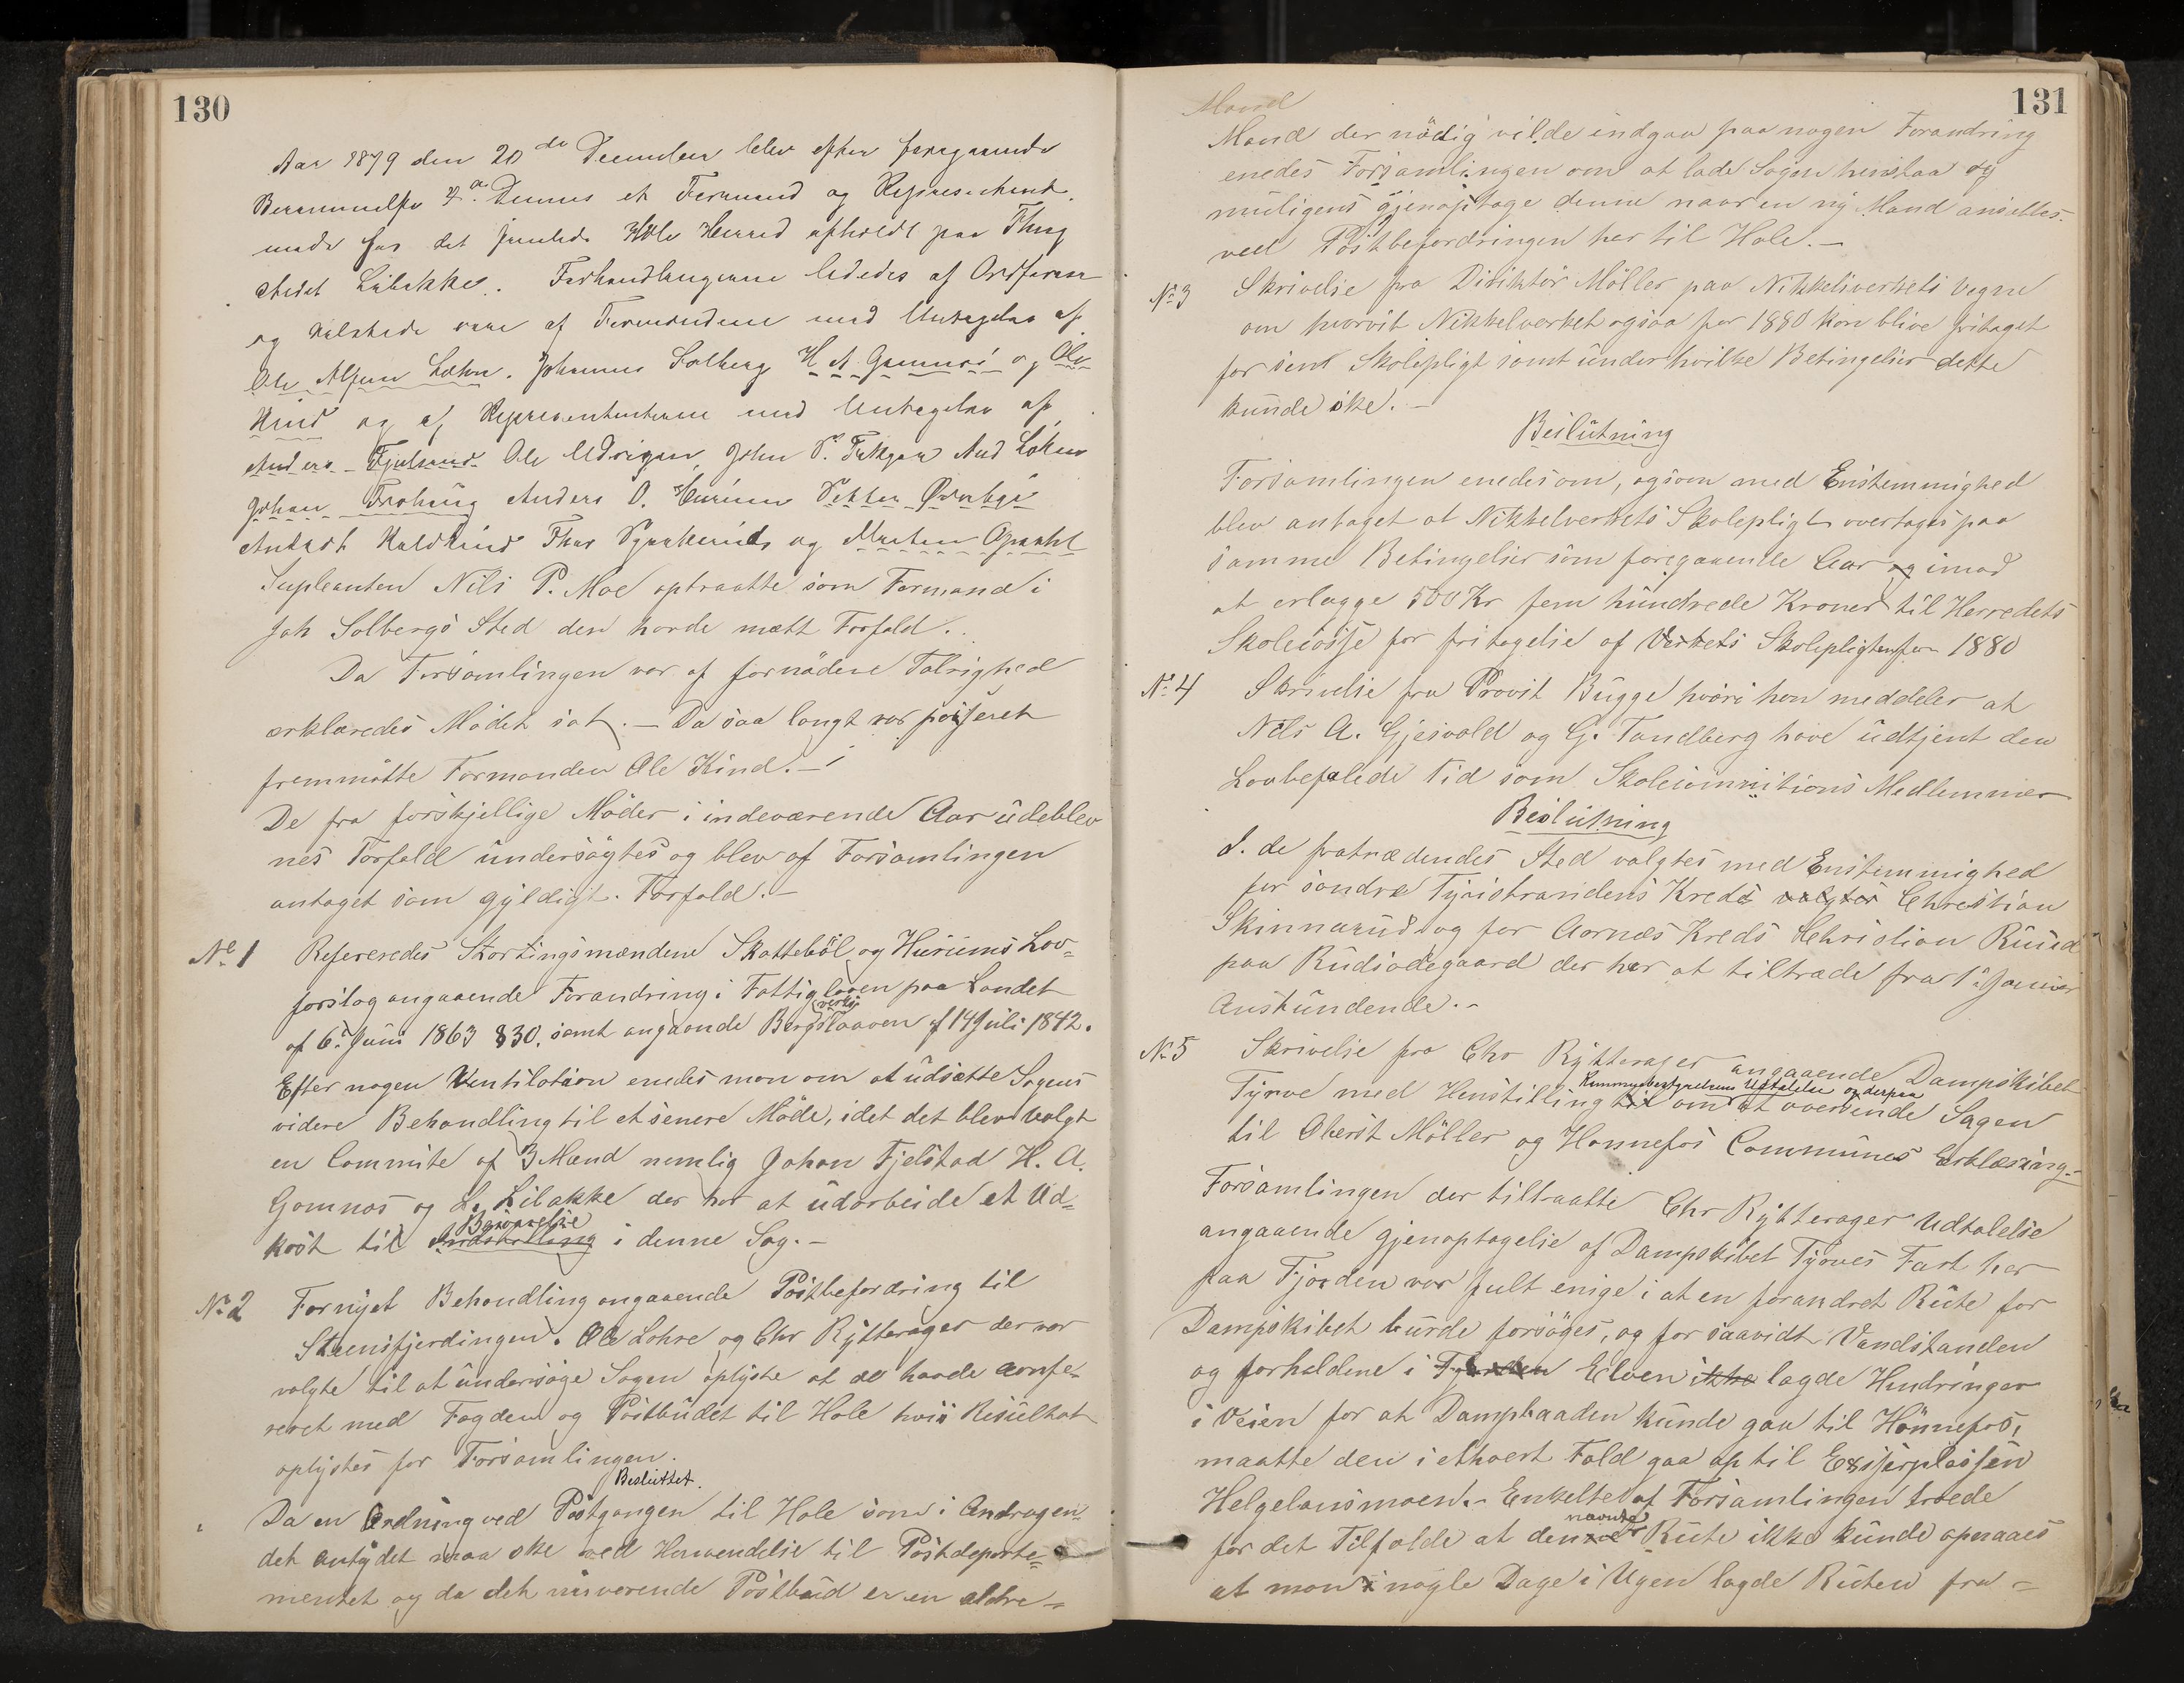 130
Aar 1879 den 20de December blev efter foregaaende
Berammelse af Dennes et Formand og Represectant
møde for det samlede Hole Herred afholdt paa Thing
stedet Libakke. Forhandlingerne lededes af Ordføreren
og tilstede vare af Formændene med Undtagelse af
Ole Alfsen Løhre. Johannes Solberg H A Gomnæs og Ole
Kind og af Representanterne med Undtagelse af
Anders Fjelstad Ole Johan P. And Løken
Johan Frøhaug Anders O. Hurum Petter
og Morten Opsahl
Supleanten Nils P. Moe optraatte som Formand i
Joh Solbergs Sted den havde mødt Forfald.
Da Forsamlingen var af fornöden Talrighed
ærklæredes Mödet sat. — Da saa langt var passeret
fremmötte Formanden Ole Kind. —
De fra forskjellige Möder i indeværende Aar udeblev
nes Forfald undersögtes og blev af Forsamlingen
antaget som gyldigt Forfald. —
No 1 Refereredes Stortingsmændene Skatteböl og Hurums Lov=
forslag angaaende Forandring i Fattigloven paa Landet
af 6te Juni 1863 § 30. samt angaaende Bergsværks Loaven af 14 Juli 1842.
Efter nogen Ventilation enedes man om at udsætte Sagens
videre Behandling til et senere Möde, idet det blev valgt
en Commite af 3 Mænd nemlig Johan Fjelstad H. A.
Gomnæs og L. Libakke der har at udarbeide et Ud=
kast til Indstilling Besvarelse i denne Sag. —
No 2 Fornyet Behandling angaaende Postbefordring til
Steensfjerdingen. Ole Lohre og Chr Rytterager der var
valgte til at undersöge Sagen oplyste at de havde confe=
reret med Fogden og Postbudet til Hole hvis Resultat
oplystes for Forsamlingen.
Besluttet.
Da en Ordning ved Postgangen til Hole som i Andragen
det antydet maa ske ved Henvendelse til Postdeparte=
mentet og da det nuværende Postbud er en eldre =
131
Mand
Mand der nödig vilde indgaa paa nogen Forandring
enedes Forsamlingen om at lade Sagen henstaa og
muligens gjenoptage denne naar en ny Mand ansættes
ved Postbefordringen her til Hole. —
No 3 Skrivelse fra Direktör Möller paa Nikkelverkets Vegne
om hvorvit Nikkelverket ogsaa for 1880 kan blive fritaget
for sint Skolepligt samt under hvilke Betingelser dette
kunde ske. —
Beslutning
Forsamlingen enedes om, og som med Enstemmighed
blev antaget at Nikkelverkets Skolepligt overtages paa
samme Betingelser som foregaaende Aar og imod
at erlægge 500 Kr fem hundrede Kroner til Herredets
Skolecasse for fritagelse af Verkets Skolepligten for 1880
No 4 Skrivelse fra Provst Bugge hvori han meddeler at
Nils A. Gjesvold og G. Tandberg have udtjent den
Lovbefalede tid som Skolecommitions Medlemmer
Beslutning
I. de fratrædendes Sted valgtes med Enstemmighed
for söndre Tyristrandens Kreds valgtes Christian
Skinnarud og for Aarnæs Kreds Christian Ruud
paa Rudsödegaard der har at tiltræde fra 1ste Januar
Anstundende. —
No 5 Skrivelse fra Chr Rytterager angaaende Dampskibet
Tyrve med Henstilling til om Kommunebestyrelsens Udtalelse og derpaa at oversende Sagen
til Oberst Möller og Hönnefos Communes Erklæring. —
Forsamlingen der tiltraatte Chr Rytterager Udtalelse
angaaende gjenoptagelse af Dampskibet Tyrves Fart her
paa Fjorden var fult enige i at en forandret Rute for
Dampskibet burde forsöges, og for saavidt Vandstanden
og forholdene i Fjorden Elven ikke lagde Hindringer
i Veien for at Dampbaaden kunde gaa til Hönnefos,
maatte den i ethvert Fald gaa op til Exsiserplassen
Helgelansmoen. — Enkelte af Forsamlingen troede
for det Tilfælde at den nævnte Rute ikke kunde opnaaes
at man i nogle Dage i Ugen lagde Ruten fra =